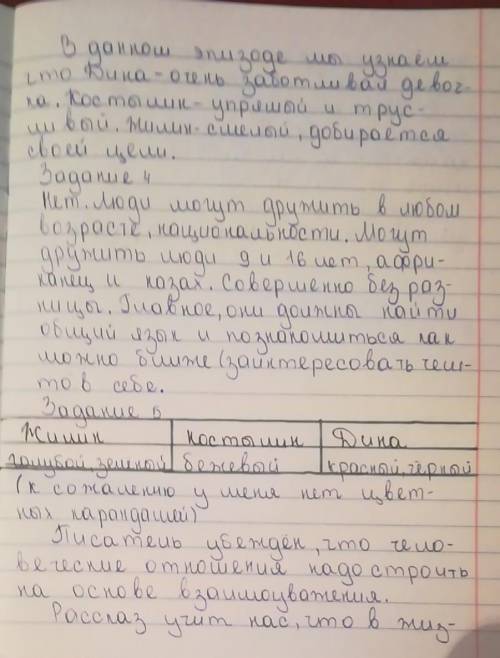 В данном эпизоде мы узнаём
что Дина - очень заботливай девоч-
ка. Костылин - упрямый и трус-
ливый. Жилин - смелый, добирается
своей цели.
Задание 4
Нет. Люди могут дружить в любом
возрасте, национальности. Могут
дружить люди 9 и 16 лет, афри-
канец и казах. Совершенно без раз-
ницы. Главное, они должны найти
общий язык и познакомиться как
можно ближе (заинтересовать чем-
то в себе.
Задание 5
Жилин Костылин Дина
голубой, зеленый бежевый красный, чёрный
(к сожалению у меня нет цвет-
ных карандашей)
Писатель убеждён, что чело-
веческие отношения надо строить
на основе взаимоуважения.
Рассказ учит нас, что в жиз-